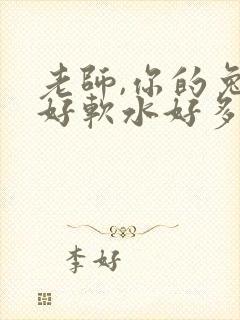 老師,你的兔
好軟水好多
李好